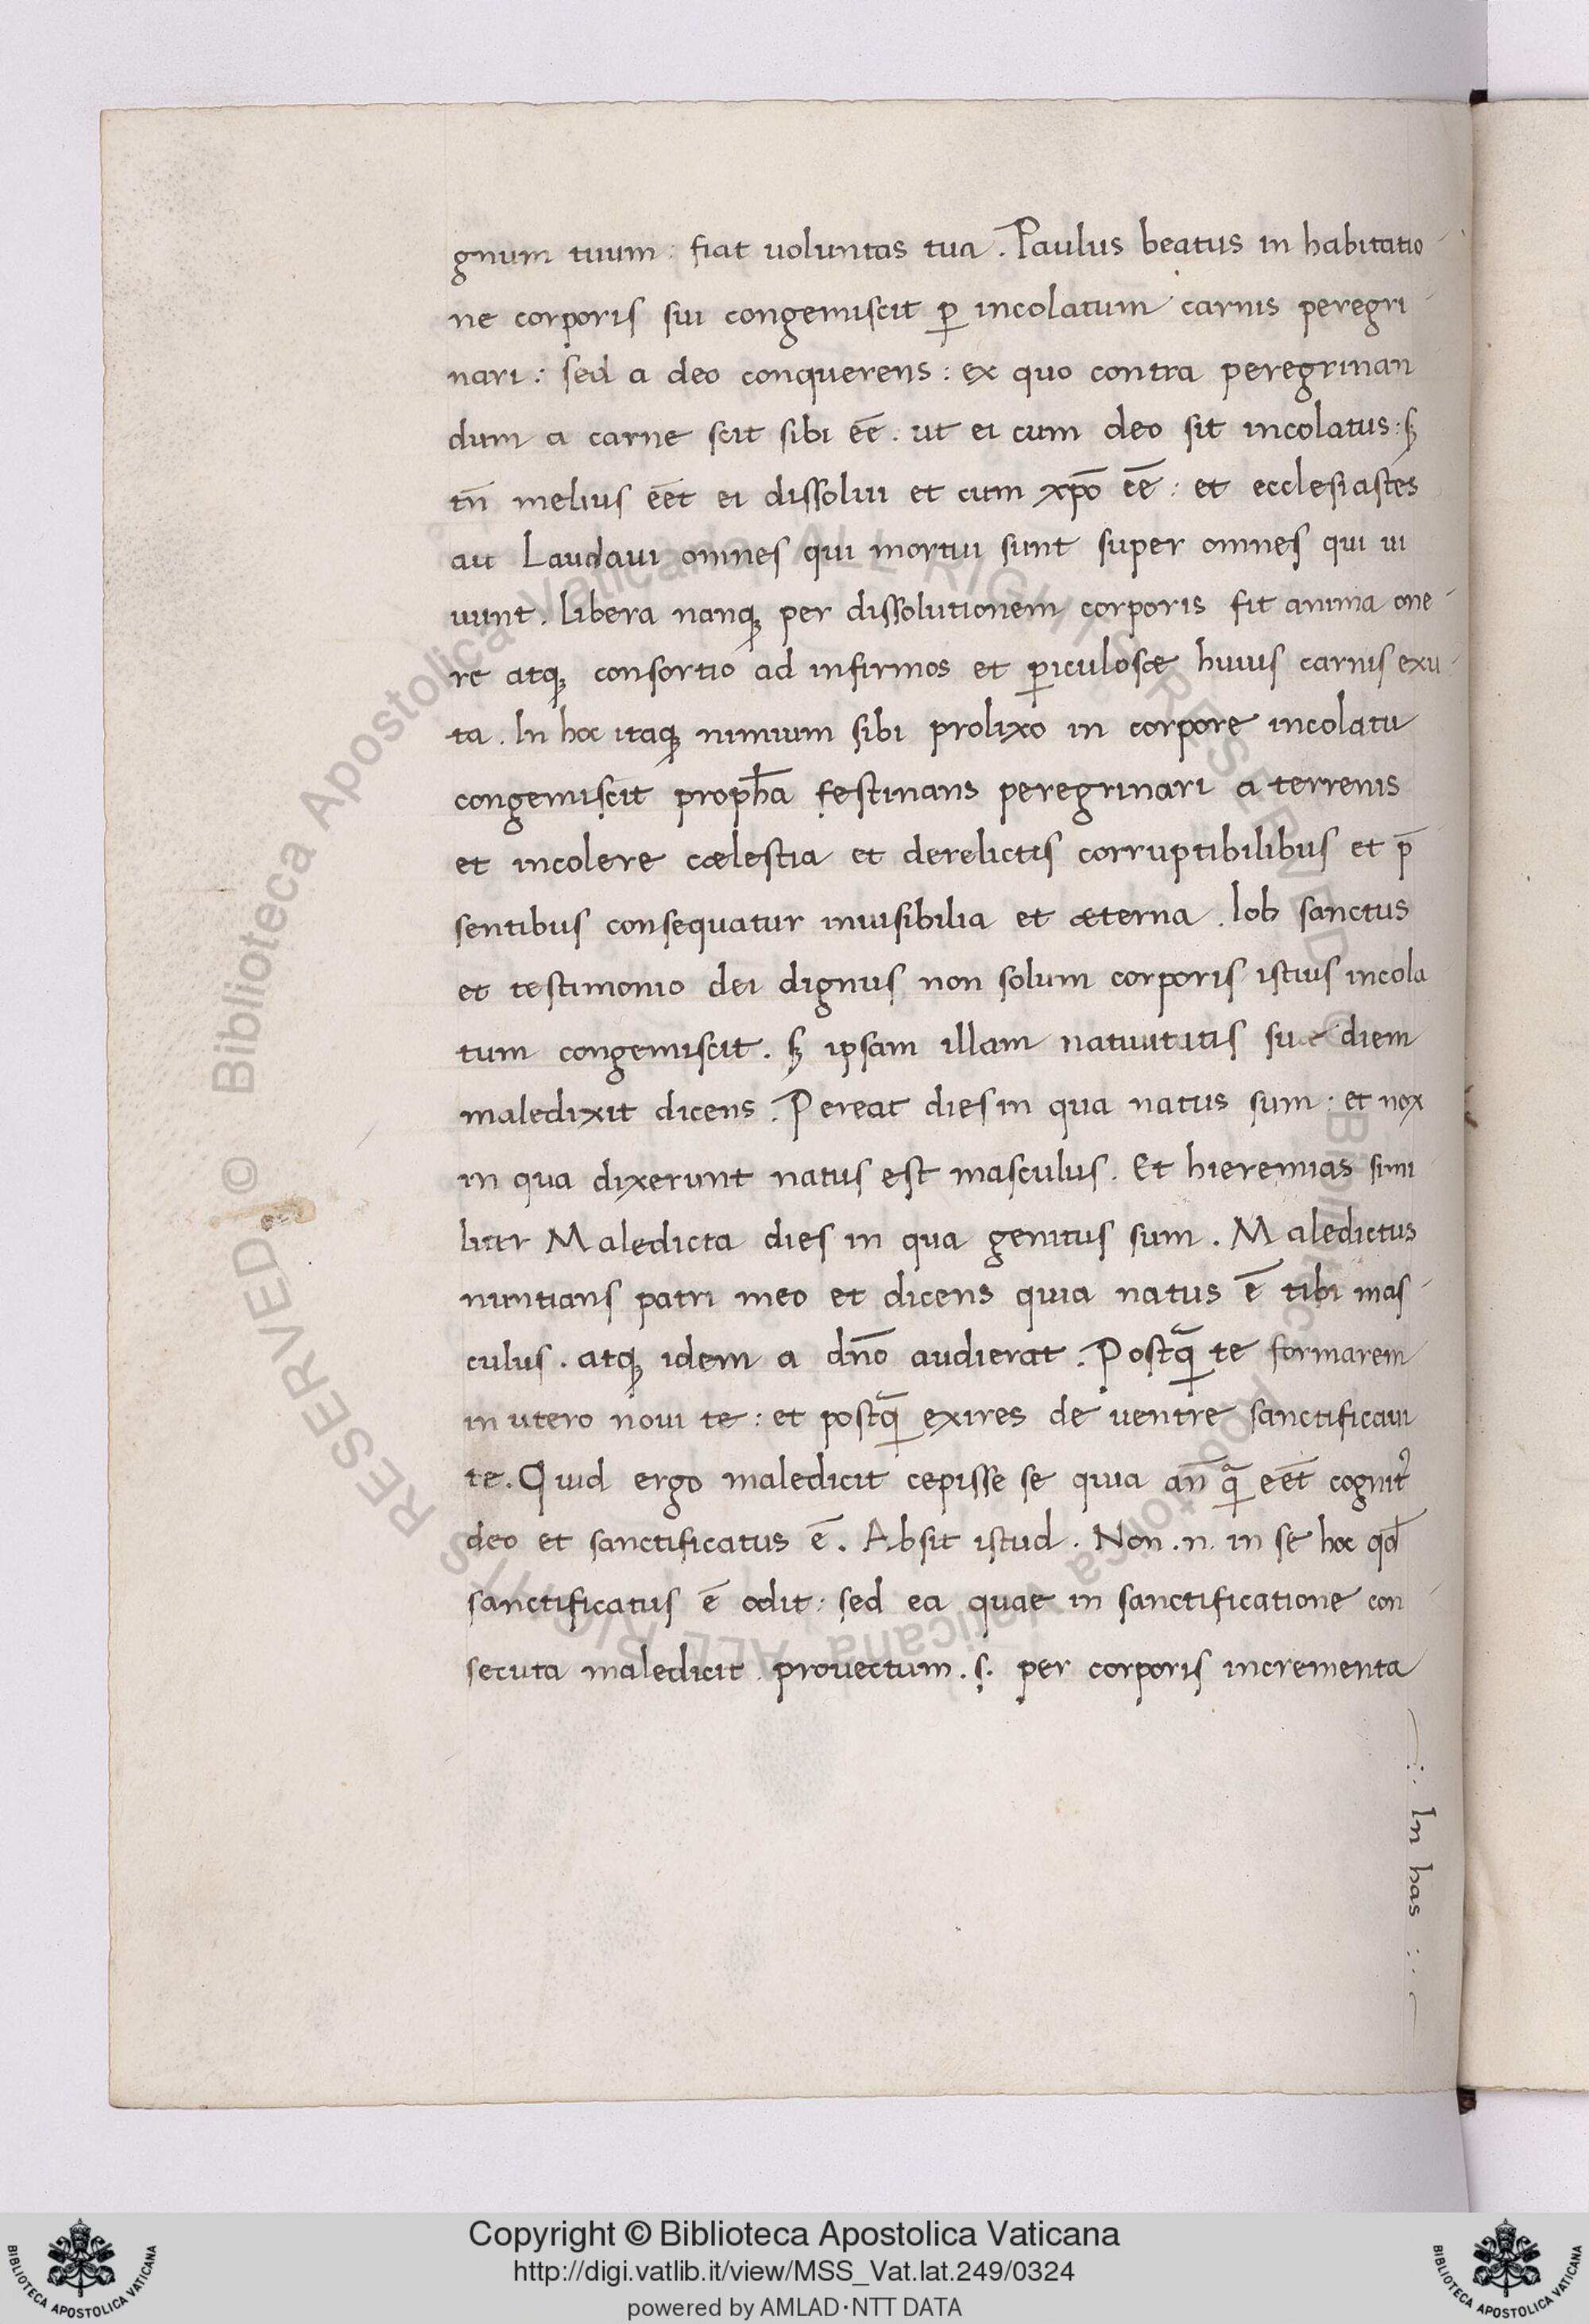 gnum tuum : fiat uoluntas tua . Paulus beatus in habitatio-
ne corporis sui congemiscit ꝑ incolatum carnis peregri-
nari : sed a deo conquerens : ex quo contra peregrinan
dum a carne scit sibi eē̄ . ut ei cum deo sit incolatus : ꞩ
tn̄ melius eēt ei dissolui et cum xp̄o eē : et ecclesiastes
aīt Laudaui omnes qui mortui sunt super omnes qui ui
uunt . libera nanqꝫ per dissolutionem corporis fit anima one-
re atqꝫ consortio ad infirmos et ꝑiculosæ huius carnis exu-
ta . In hoc itaqꝫ nimium sibi prolixo in corpore incolatu
congemiscit proph̄a festinans peregrinari a terrenis
et incolere cælestia et derelictis corruptibilibus et p̄
sentibus consequatur inuisibilia et æterna . Iob sanctus
et testimonio dei dignus non solum corporis istius incola
tum congemiscit . ꞩ ipsam illam natiuitatis suæ diem
maledixit dicens . Pereat dies in qua natus sum : et nox
in qua dixerunt natus est masculus . Et hieremias simi
liter Maledicta dies in qua genitus sum . Maledictus
nuntians patri meo et dicens quia natus ē tibi mas-
culus . atqꝫ idem a dn̄o audierat . Postꝙ̄ te formarem
in utero noui te : et postꝙ̄ exires de uentre sanctificaui
te . Quid ergo maledicit cepisse se quia an̄ ꝙ̄ eēt cognitꝰ
deo et sanctificatus ē . Absit istud . Non .n. in se hoc qđ
sanctificatus ē odit : sed ea quae in sanctificatione con-
secuta maledicit . prouectum .s. per corporis incrementa
In has
Copyright © Biblioteca Apostolica Vaticana
http://digi.vatlib.it/view/MSS_Vat.lat.249/0324
powered by AMLAD·NTT DATA
BIBLIOTECA APOSTOLICA VATICANA
BIBLIOTECA APOSTOLICA VATICANA
© Biblioteca Apostolica Vaticana ALL RIGHTS RESERVED © Biblioteca Apostolica Vaticana ALL RIGHTS RESERVED